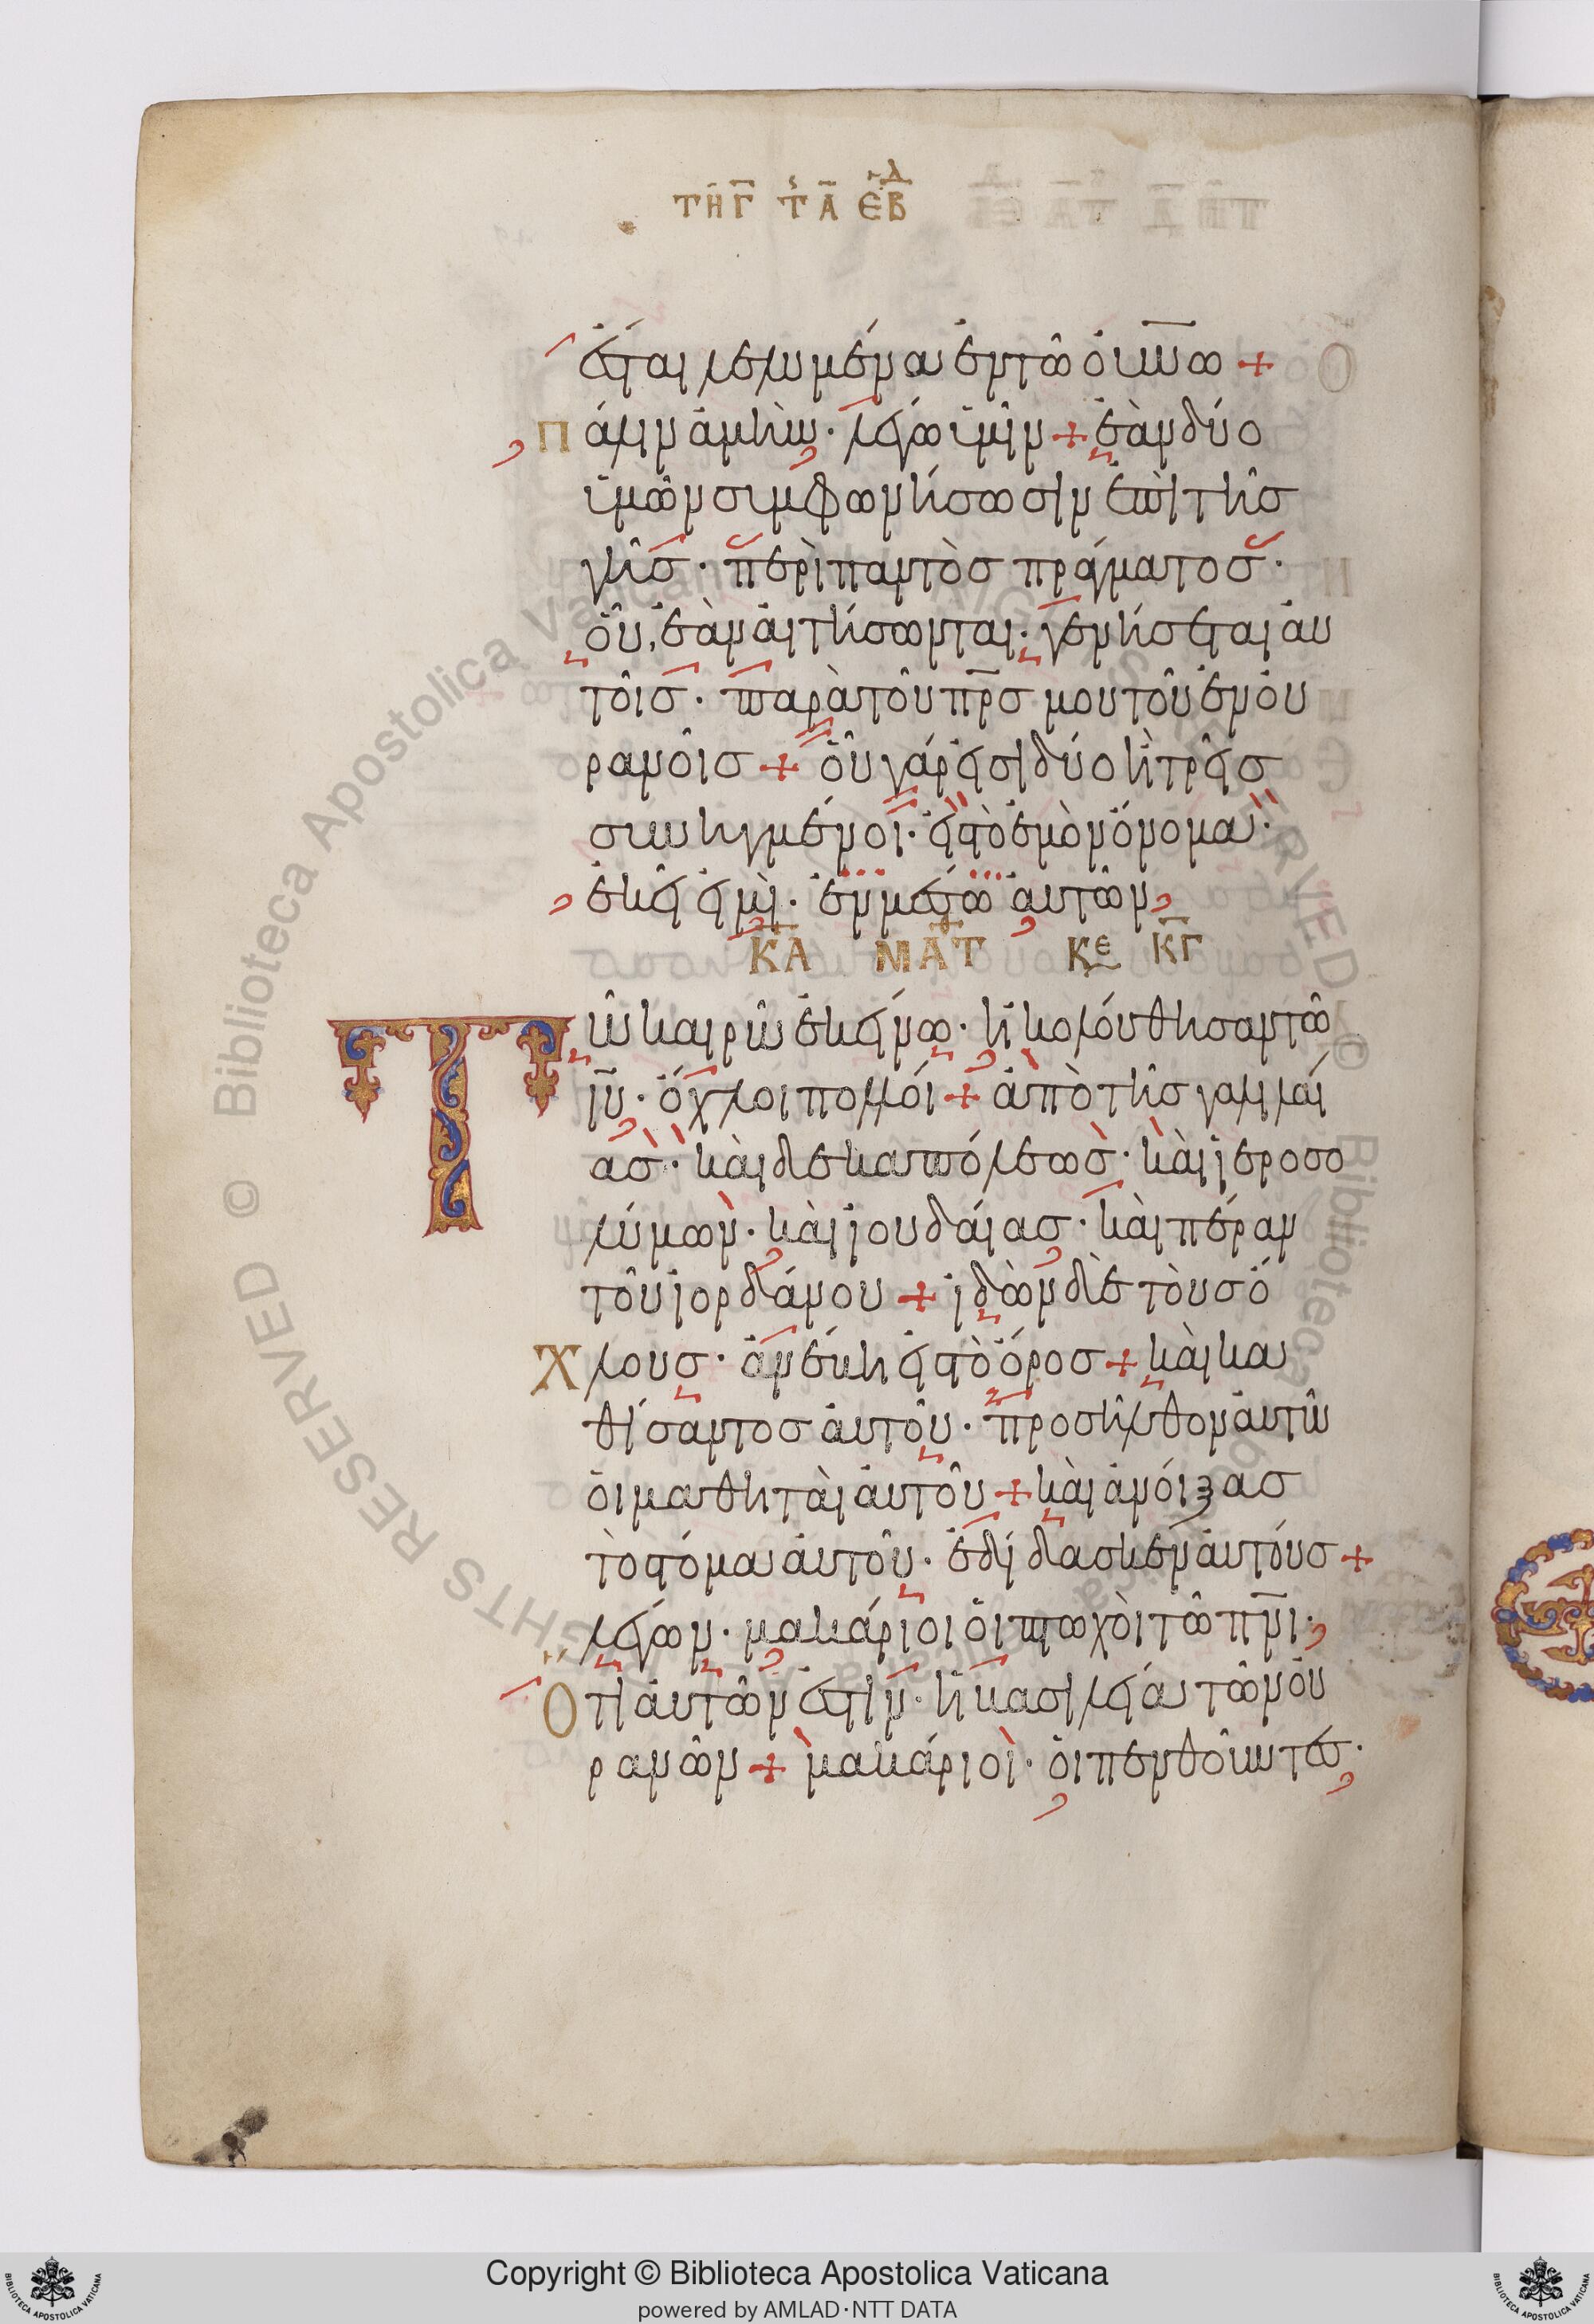 τῆ γ̅ τ ̅α ἑβδ
ἔσται λελυμένα ἐν τῶ ου̅νω +
Πάλιν ἀμὴν· λέγω ὑμῖν + ἐὰν δύο
ὑμῶν συμφωνήσωσιν ἐπὶ τῆσ
γῆσ· περὶ παντὸσ πράγματοσ·
οὗ, ἐὰν αἰτήσωνται· γενήσεται αὐ
τοῖσ· παρὰ τοῦ π̅ρ̅σ μου τοῦ ἐν οὐ
ρανοῖσ + οὗ γάρ εἰσι δύο ἢ τρεῖσ
συνηγμένοι· εἰσ τὸ ἐμὸν ὄνομα·
ἐκεῖ εἰμὶ· ἐν μέσω αὐτῶν
Κ̅Α ΜΑΤ Κε Κ̅Γ
Τῶ καιρῶ ἐκείνω· ἠκολούθησαν τῶ
ι̅υ̅· ὄχλοι πολλοί + ἀπὸ τῆσ γαλιλαί
ασ· καὶ δεκαπόλεωσ· καὶ ἱεροσο
λύμων· καὶ ἰουδαίασ· καὶ πέραν
τοῦ ἰορδάνου + ἰδὼν δὲ τοὺσ ὄ
Χλουσ· ἀνέβη εἰσ τὸ ὄροσ + καὶ κα
θίσαντοσ αὐτοῦ· προσῆλθον αὐτῶ
οἱ μαθηταὶ αὐτοῦ + καὶ ἀνοίξασ
τὸ στόμα αὐτοῦ· ἐδίδασκεν αὐτούσ +
λέγων· μακάριοι οἱ πτωχοὶ τῶ π̅ν̅ι·
Ὅτι αὐτῶν ἐστιν· ἡ βασιλεία τῶν οὐ
ρανῶν + μακάριοι· οἱ πενθοῦντεσ·
Copyright © Biblioteca Apostolica Vaticana
powered by AMLAD·NTT DATA